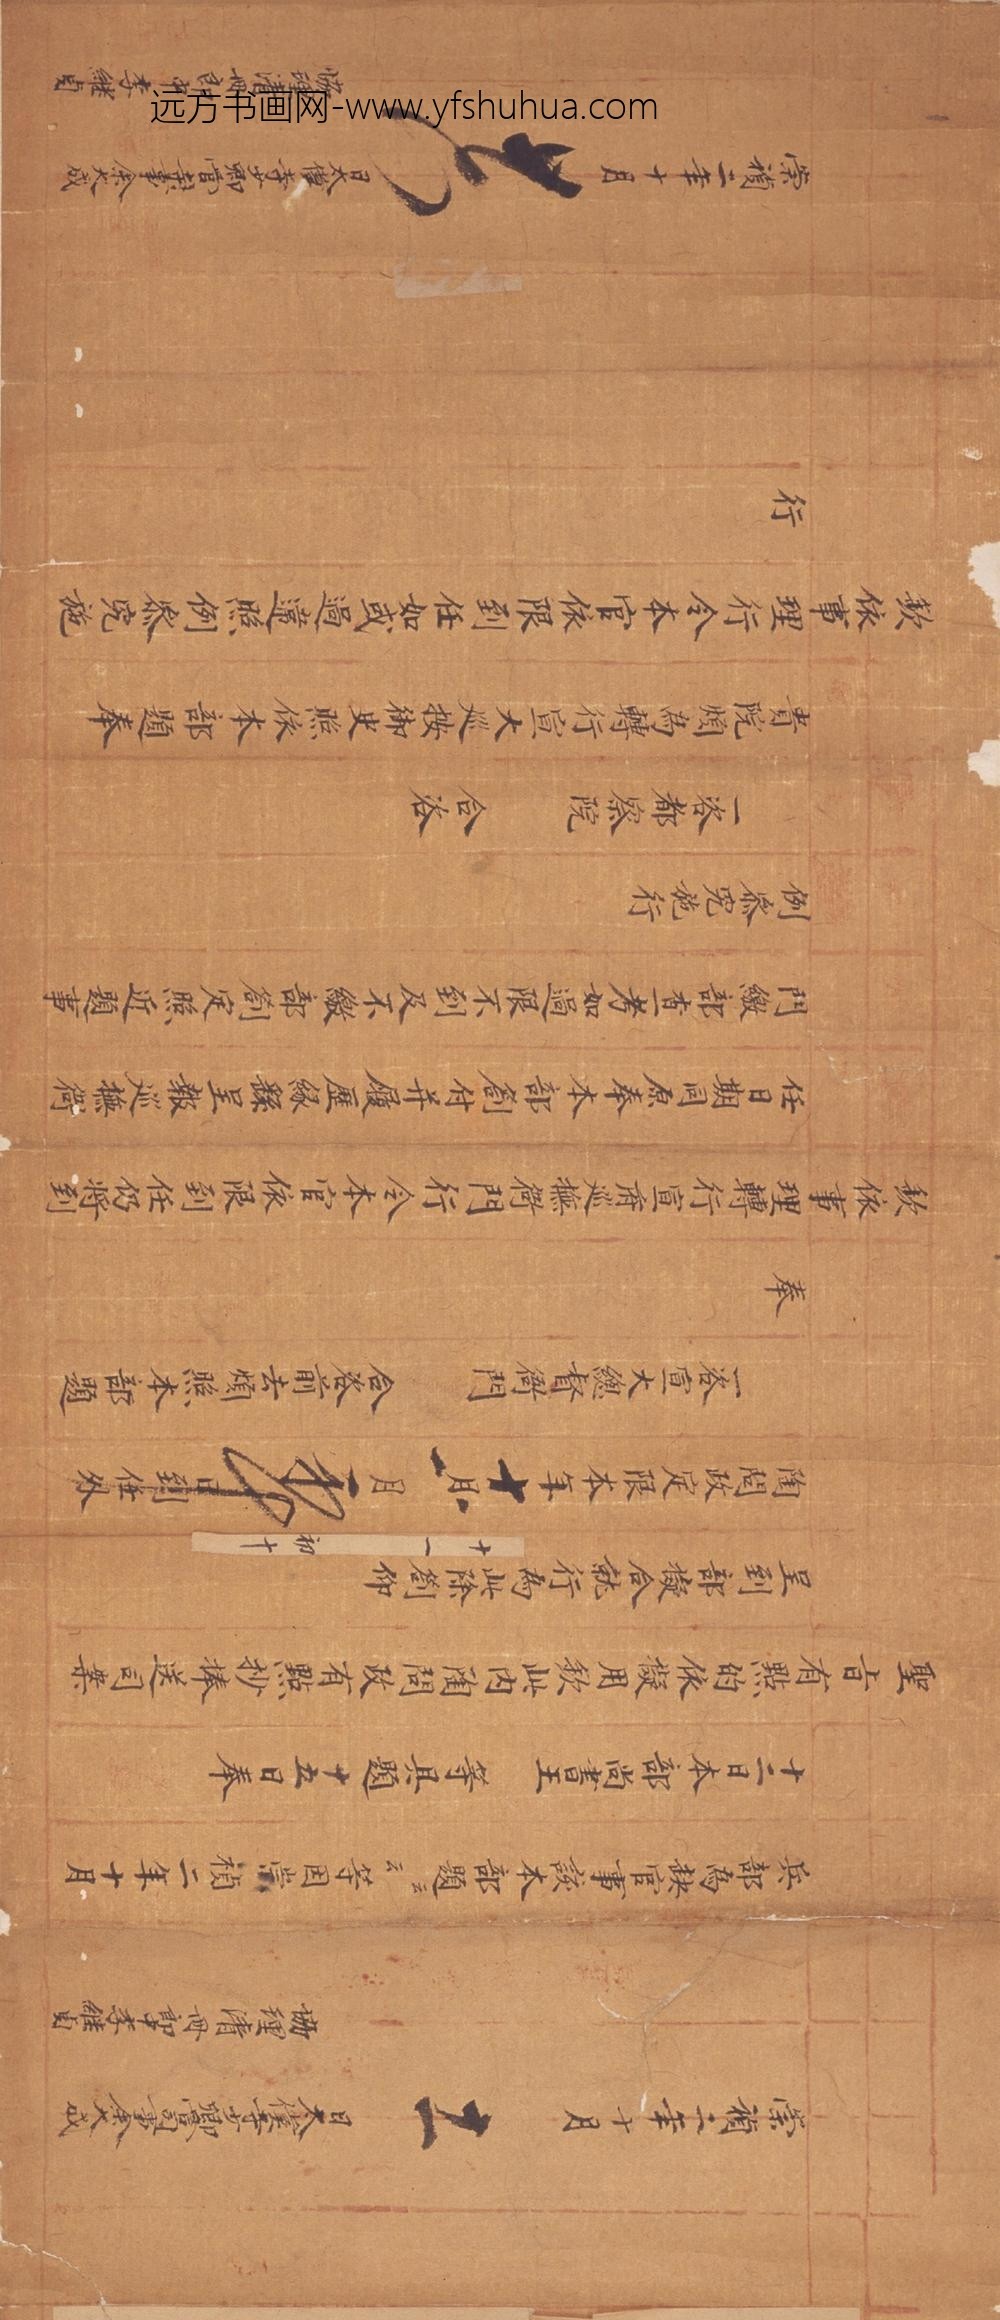 远方书画网-www.yfshuhua.com
崇禎二年十月 日太僕寺少卿管司事余大成
協理清冊郎中李繼貞
兵部為缺官事該本部題云云等因崇禎二年十月
十二日本部尚書王 等具題廿五日奉
聖旨有點的依擬用欽此內陶問政有點抄捧送司案
呈到部擬合就行為此除劄仰
十一 初十
陶問政定限本年十月 月 日到任外
一咨宣大總督衙門 合咨前去煩照本部題
奉
欽依事理轉行宣府巡撫衙門行令本官依限到任仍將到
任日期同原奉本部劄付并履歷緣繇呈報巡撫衙
門繳部查考如過限不到及不繳部劄定照近題事
例參究施行
一咨都察院 合咨
貴院煩為轉行宣大巡按御史照依本部題奉
欽依事理行令本官依限到任如或過違照例參究施
行
崇禎二年十月 日太僕寺少卿管司事余大成
協理清冊郎中李繼貞